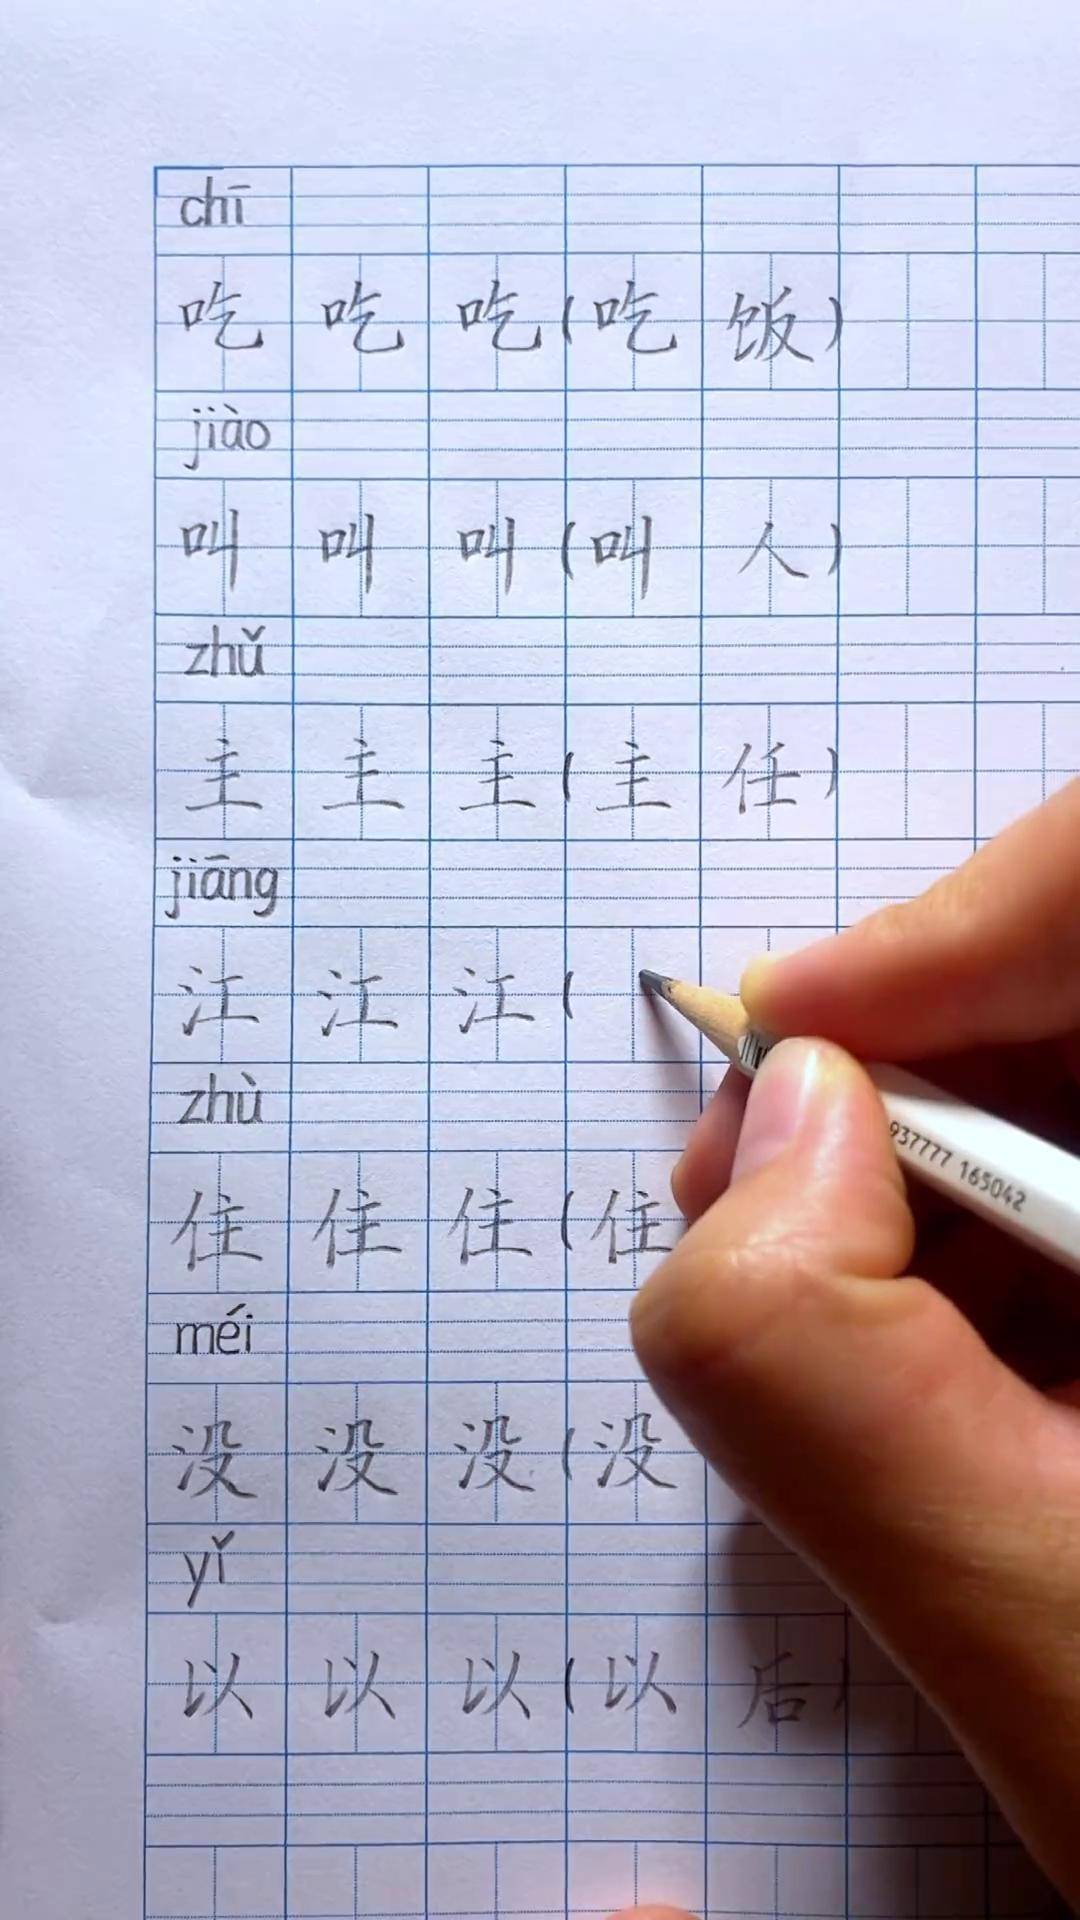 chī
吃 吃 吃(吃 饭)
jiào
叫 叫 叫(叫 人)
zhǔ
主 主 主(主 任)
jiāng
江 江 江(
zhù
住 住 住(住
méi
没 没 没(没
yǐ
以 以 以(以 后)
937777 165042